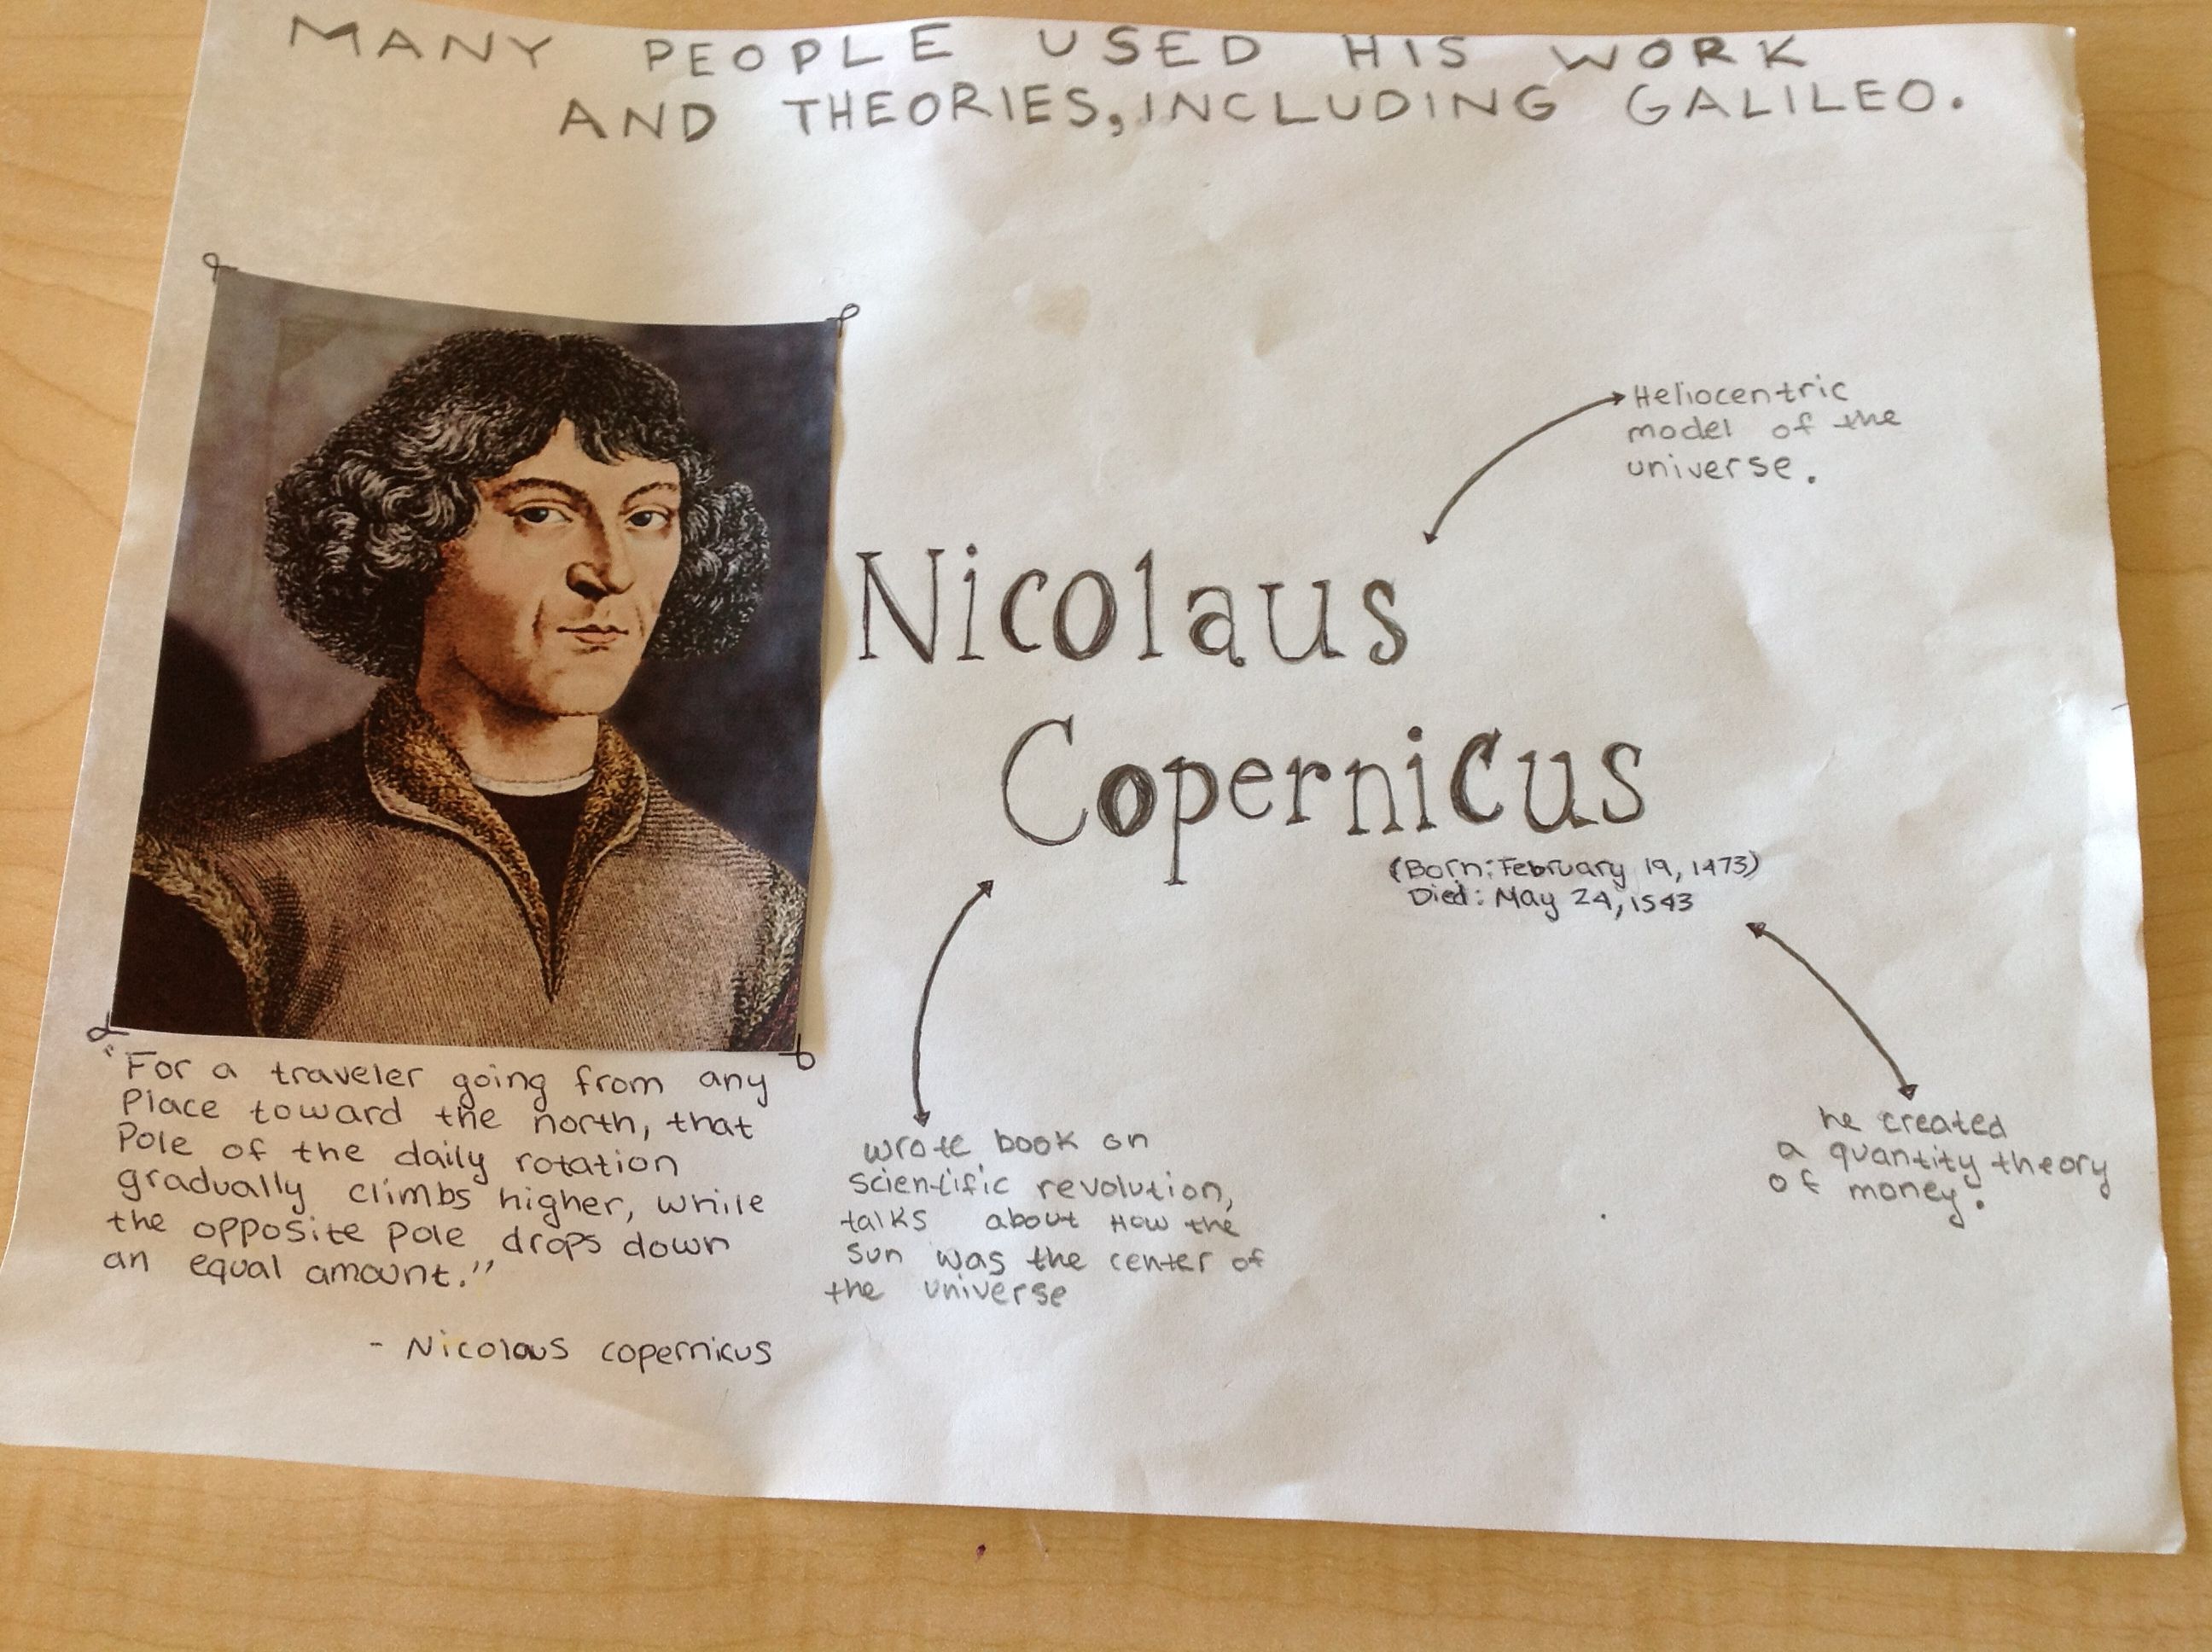 MANY PEOPLE USED HIS WORK
AND THEORIES, INCLUDING GALILEO.
Heliocentric
model of the
universe.
Nicolaus
Copernicus
(Born: February 19, 1473)
Died: May 24, 1543
"For a traveler going from any
Place toward the north, that
Pole of the daily rotation
gradually climbs higher, while
the opposite pole drops down
an equal amount."
- Nicolaus copernicus
wrote book on
scientific revolution,
talks about How the
sun was the center of
the universe
he created
a quantity theory
of money.